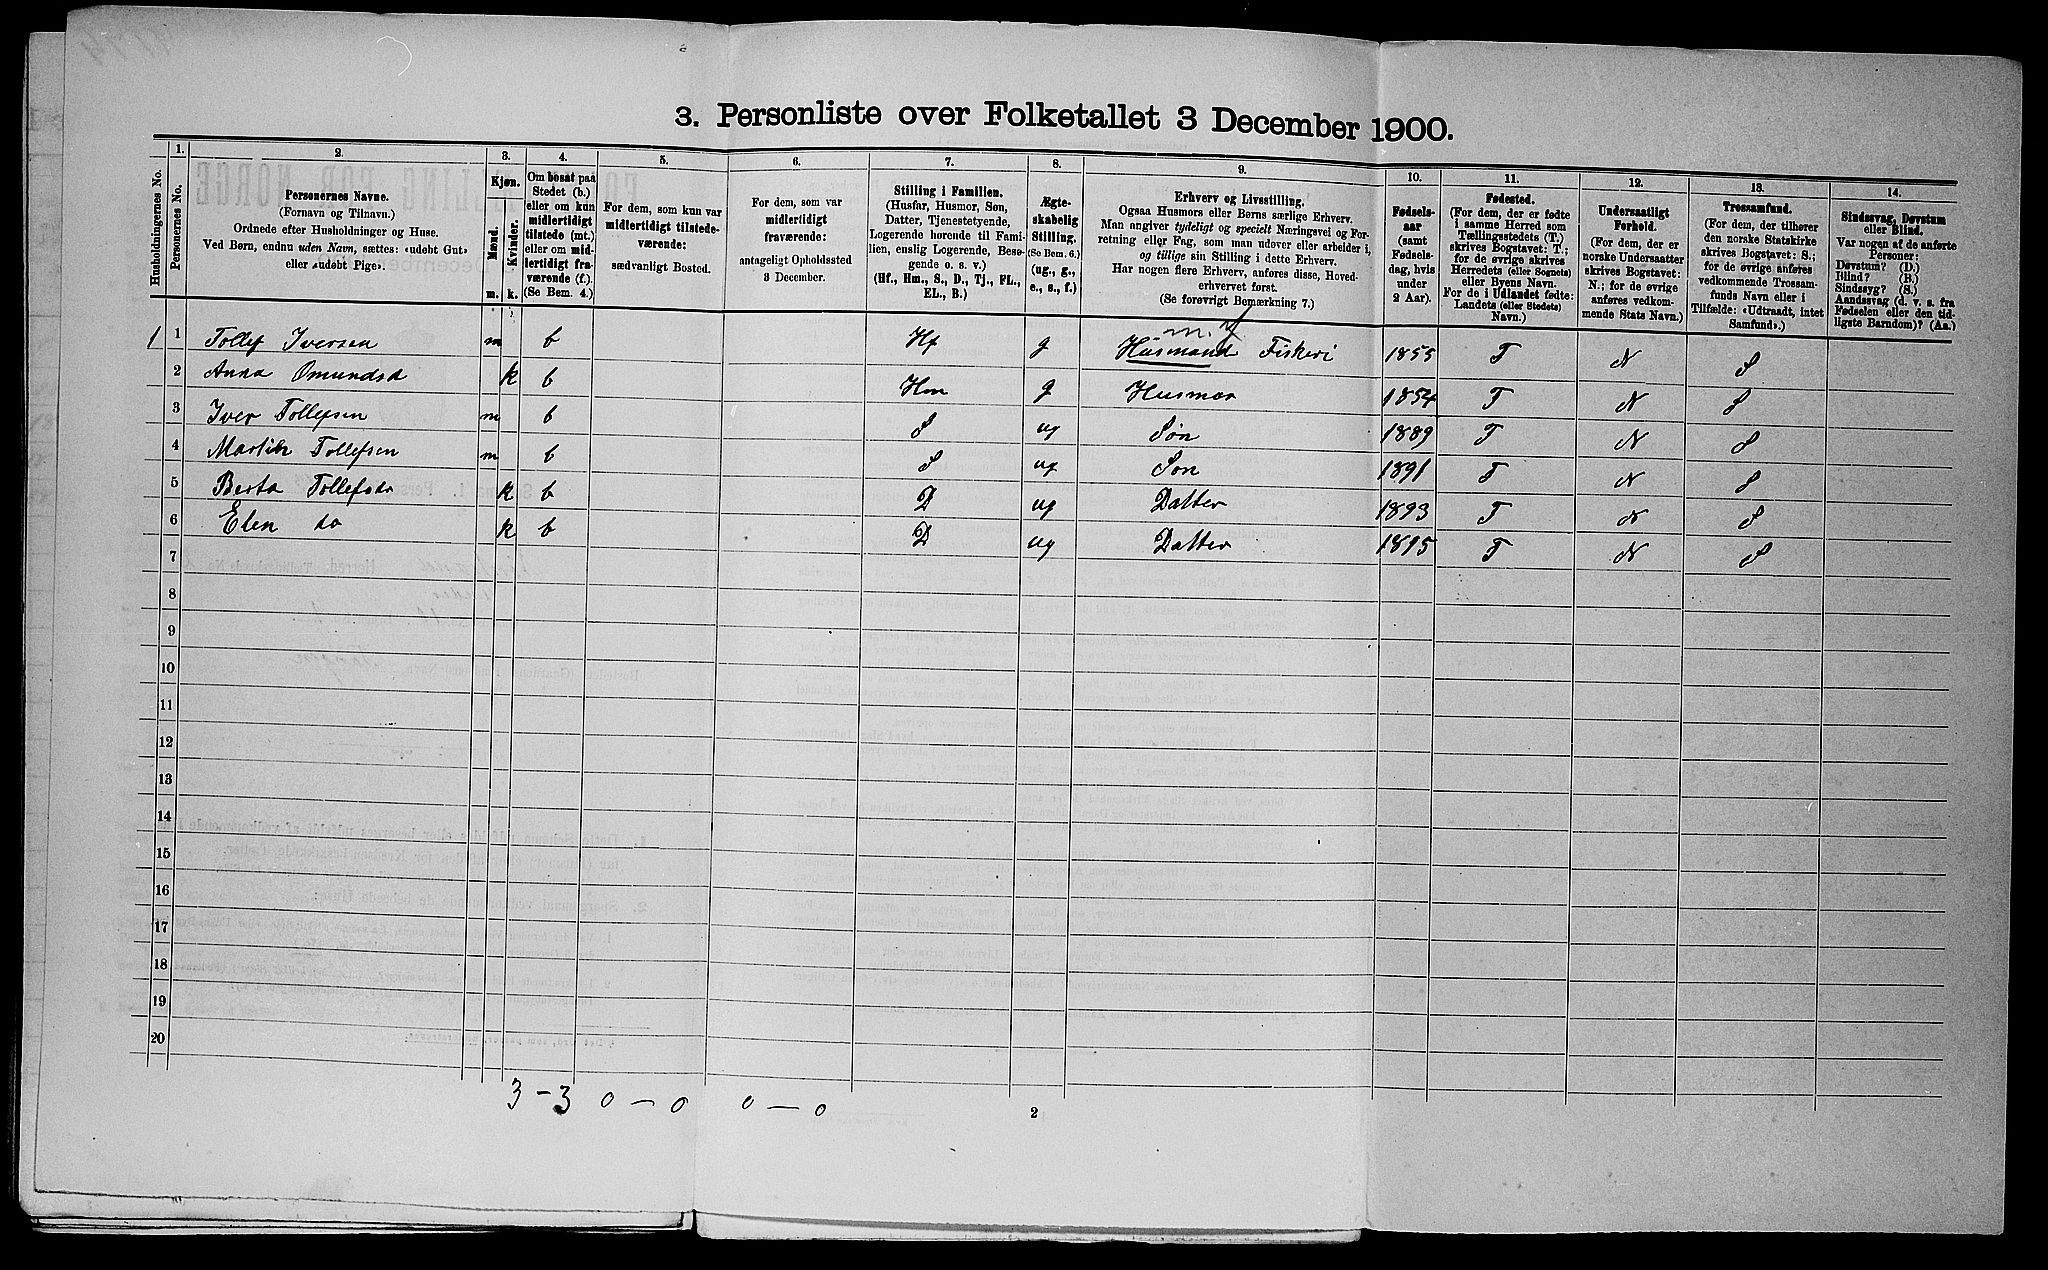 3. Personliste over Folketallet 3 December 1900.
1. 2. 3. 4. 5. 6. 7. 8. 9. 10. 11. 12. 13. 14.
Husholdningernes No.
Personernes No.
Personernes Navne.
(Fornavn og Tilnavn.)
Ordnede efter Husholdninger og Huse.
Ved Børn, endnu uden Navn, sættes: «udøbt Gut»
eller «udøbt Pige».
Kjøn.
Mænd.
Kvinder.
m. k.
Om bosat paa
Stedet (b.)
eller om kun
midlertidigt
tilstede (mt.)
eller om mid-
lertidigt fra-
værende (f.)
(Se Bem. 4.)
For dem, som kun var
midlertidigt tilstede-
værende:
sædvanligt Bosted.
For dem, som var
midlertidigt
fraværende:
antageligt Opholdssted
3 December.
Stilling i Familien.
(Husfar, Husmor, Søn,
Datter, Tjenestetyende,
Logerende hørende til Fami-
lien, enslig Logerende, Besø-
gende o. s. v.)
(Hf., Hm., S., D., Tj., FL.,
EL., B.)
Ægte-
skabelig
Stilling.
(Se Bem. 6.)
(ug., g.,
e., s., f.)
Erhverv og Livsstilling.
Ogsaa Husmors eller Børns særlige Erhverv.
Man angiver tydeligt og specielt Næringsvei og For-
retning eller Fag, som man udøver eller arbeider i,
og tillige sin Stilling i dette Erhverv.
Har nogen flere Erhverv, anføres disse, Hoved-
erhvervet først.
(Se forøvrigt Bemærkning 7.)
Fødsels-
aar
(samt
Fødsels-
dag, hvis
under
2 Aar).
Fødested.
(For dem, der er fødte
i samme Herred som
Tællingsstedets (T.)
skrives Bogstavet: T.;
for de øvrige skrives
Herredets (eller Sognets)
eller Byens Navn.
For de i Udlandet fødte:
Landets (eller Stedets)
Navn.)
Undersaatligt
Forhold.
(For dem, der er
norske Undersaatter
skrives Bogstavet:
N.; for de øvrige
anføres vedkom-
mende Stats Navn.)
Trossamfund.
(For dem, der tilhører
den norske Statskirke
skrives Bogstavet: S.;
for de øvrige anføres
vedkommende Trossam-
funds Navn eller i
Tilfælde: «Udtraadt, intet
Samfund».)
Sindssvag, Døvstum
eller Blind.
Var nogen af de anførte
Personer:
Døvstum? (D.)
Blind? (B.)
Sindssyg? (S.)
Aandssvag (d. v. s. fra
Fødselen eller den tid-
ligste Barndom)? (Aa.)
1 1 Tollef Iversen m b Hf g Husmand Fiskeri 1855 T N S
2 Anna Omundsd k b Hm g Husmor 1854 T N S
3 Iver Tollefsen m b S ug Søn 1889 T N S
4 Martin Tollefsen m b S ug Søn 1891 T N S
5 Berta Tollefsdr k b D ug Datter 1893 T N S
6 Elen do k b D ug Datter 1895 T N S
7
8
9
10
11
12
13
14
15
16
17
18
19
20
3 – 3 0 – 0 0 – 0
2